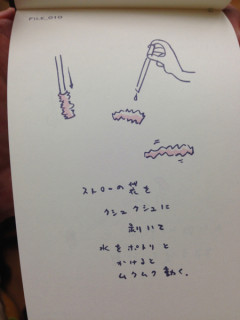 FILE_010
ストローの袋を
クシュクシュに
剥いで
水をポトリと
かけると
ムクムク動く。